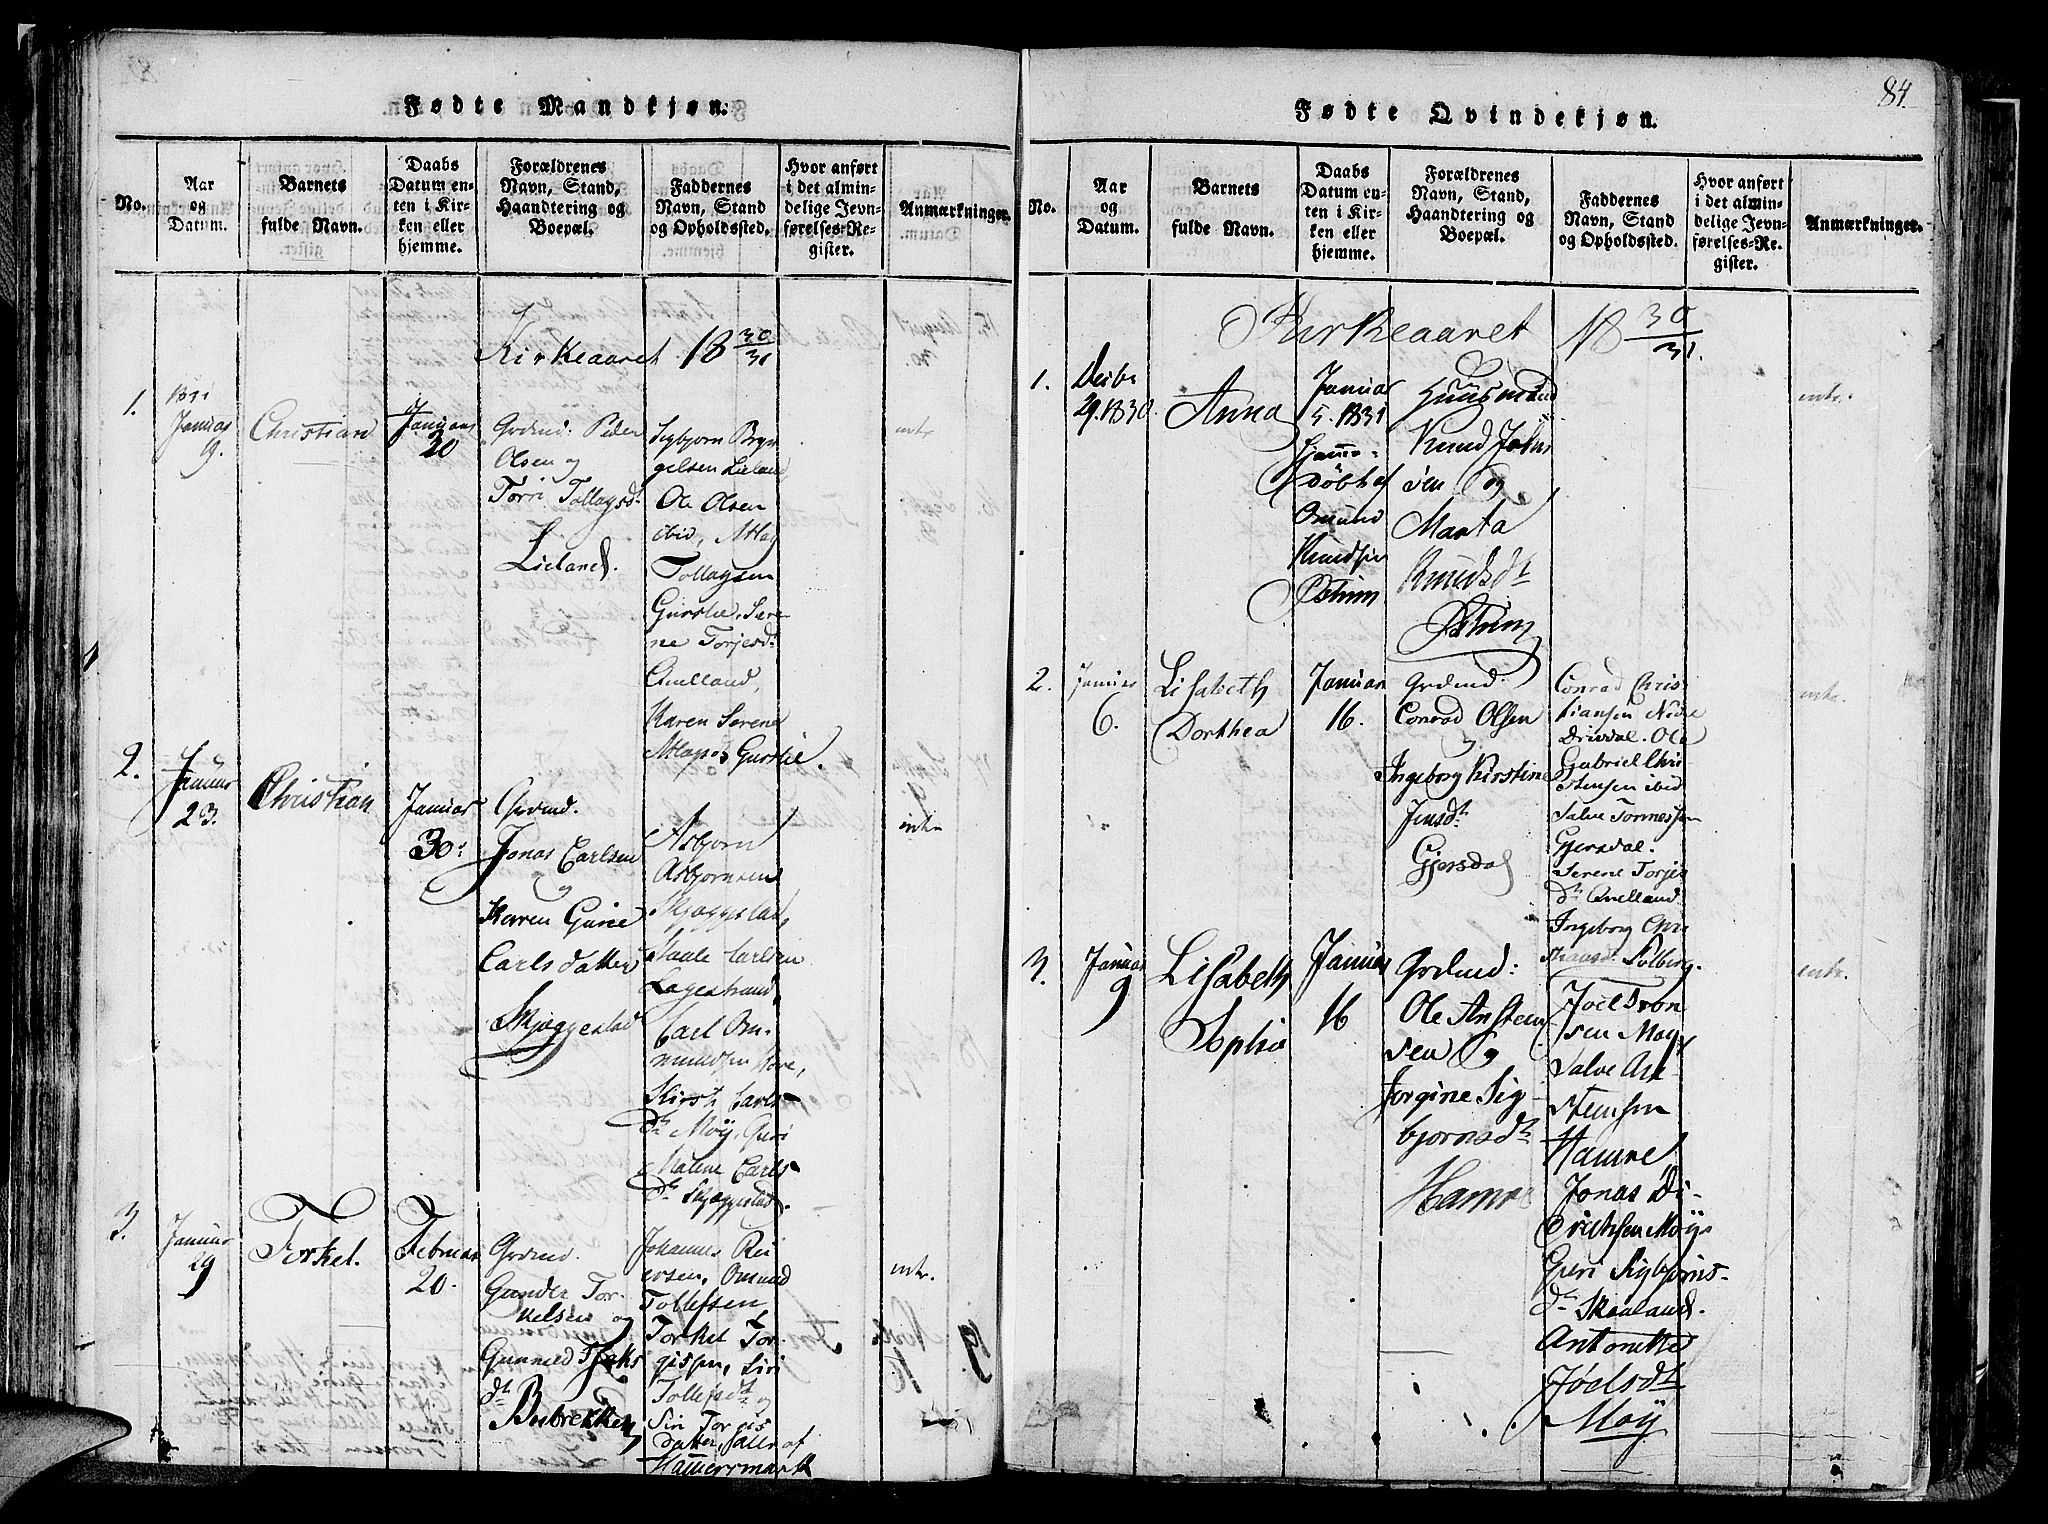 Fødte Mandkjøn.
No.
Aar
og
Datum.
Barnets
fulde Navn.
Daabs
Datum en-
ten i Kir-
ken eller
hjemme.
Forældrenes
Navn, Stand,
Haandtering og
Boepæl.
Faddernes
Navn, Stand
og Opholdssted.
Hvor anført
i det almin-
delige Jevn-
førelses-Re-
gister.
Anmærkninger.
Kirkeaaret 18 30/31
1.
Januar
19.
Christian
Januar
30
Grdmd: Peder
Olsen og
Torri Tollagsdt
Lieland.
Sigbjorn Bryn
gelsen Lieland
Ole Olsen
ibid, Atlag
Tollagsen
Gursslie, Sere-
ne Torjesdt
Qvelland,
Karen Serene
Atlags Gurslie.
intr.
2.
Januar
23.
Christian
Januar
30.
Grdmd.
Jonas Carlsen
og
Karen Gurie
Carlsdatter
Skjæggestad
Asbjorn
Asbjornsen
Skjæggestad,
Staale Carlsen
Lagestrand,
Carl Om-
mundsen
Kirsti Carls-
dt Moÿ, Guri
Malene Carls-
dt Skjæggestad.
intr
3.
Januar
29
Torkel.
Februar
20.
Grdmd.
Gunder Tor-
kelsen og
Gunnild
dt
Busbrekken
Johannes Rei
ersen, Omund
Tollefsen
Torkel Tor-
gissen, Siri
Tollefsdt og
Siri Torgis
datter, alle af
Hammermark
intr.
84.
Fødte Qvindekjøn.
No.
Aar
og
Datum.
Barnets
fulde Navn.
Daabs
Datum en-
ten i Kir-
ken eller
hjemme.
Forældrenes
Navn, Stand,
Haandtering og
Boepæl.
Faddernes
Navn, Stand
og Opholdssted.
Hvor anført
i det almin-
delige Jevn-
førelses-Re-
gister.
Anmærkninger.
Kirkeaaret 18 30/31.
1.
Decbr
29. 1830.
Anna
Januar
5. 1831
hjemme-
døbt af
Omund
Knudsen
Østrem
Huusmand
Knud Johns
sen og
Marta
Knudsdt
Østrem
intr.
2.
Januar
6.
Lisabeth
Dorthea
Januar
16.
Grdmd.
Conrad Olsen
Ingeborg Kirstine
Jensdt
Gjersdal
Conrad Chris-
tiansen Nedre
Drivdal. Ole
Gabriel Chri
stensen ibid
Salve Tonnessen
Gjersdal.
Serene Torjes
dt Qvelland.
Ingeborg Chri
stiansdt Solberg.
intr.
3.
Januar
9
Lisabeth
Sophie
Januar
16
Grdmd:
Ole Ansteen
sen og
Jorgine Sig-
bjornsdt
Hamre
Joel Tron
sen Moÿ
Salve An-
steensen
Hamre
Jonas Di-
drichsen Moÿ
Guri Sigbjorns-
dt Skaaland.
Antonette
Joelsdt
Moÿ
intr.